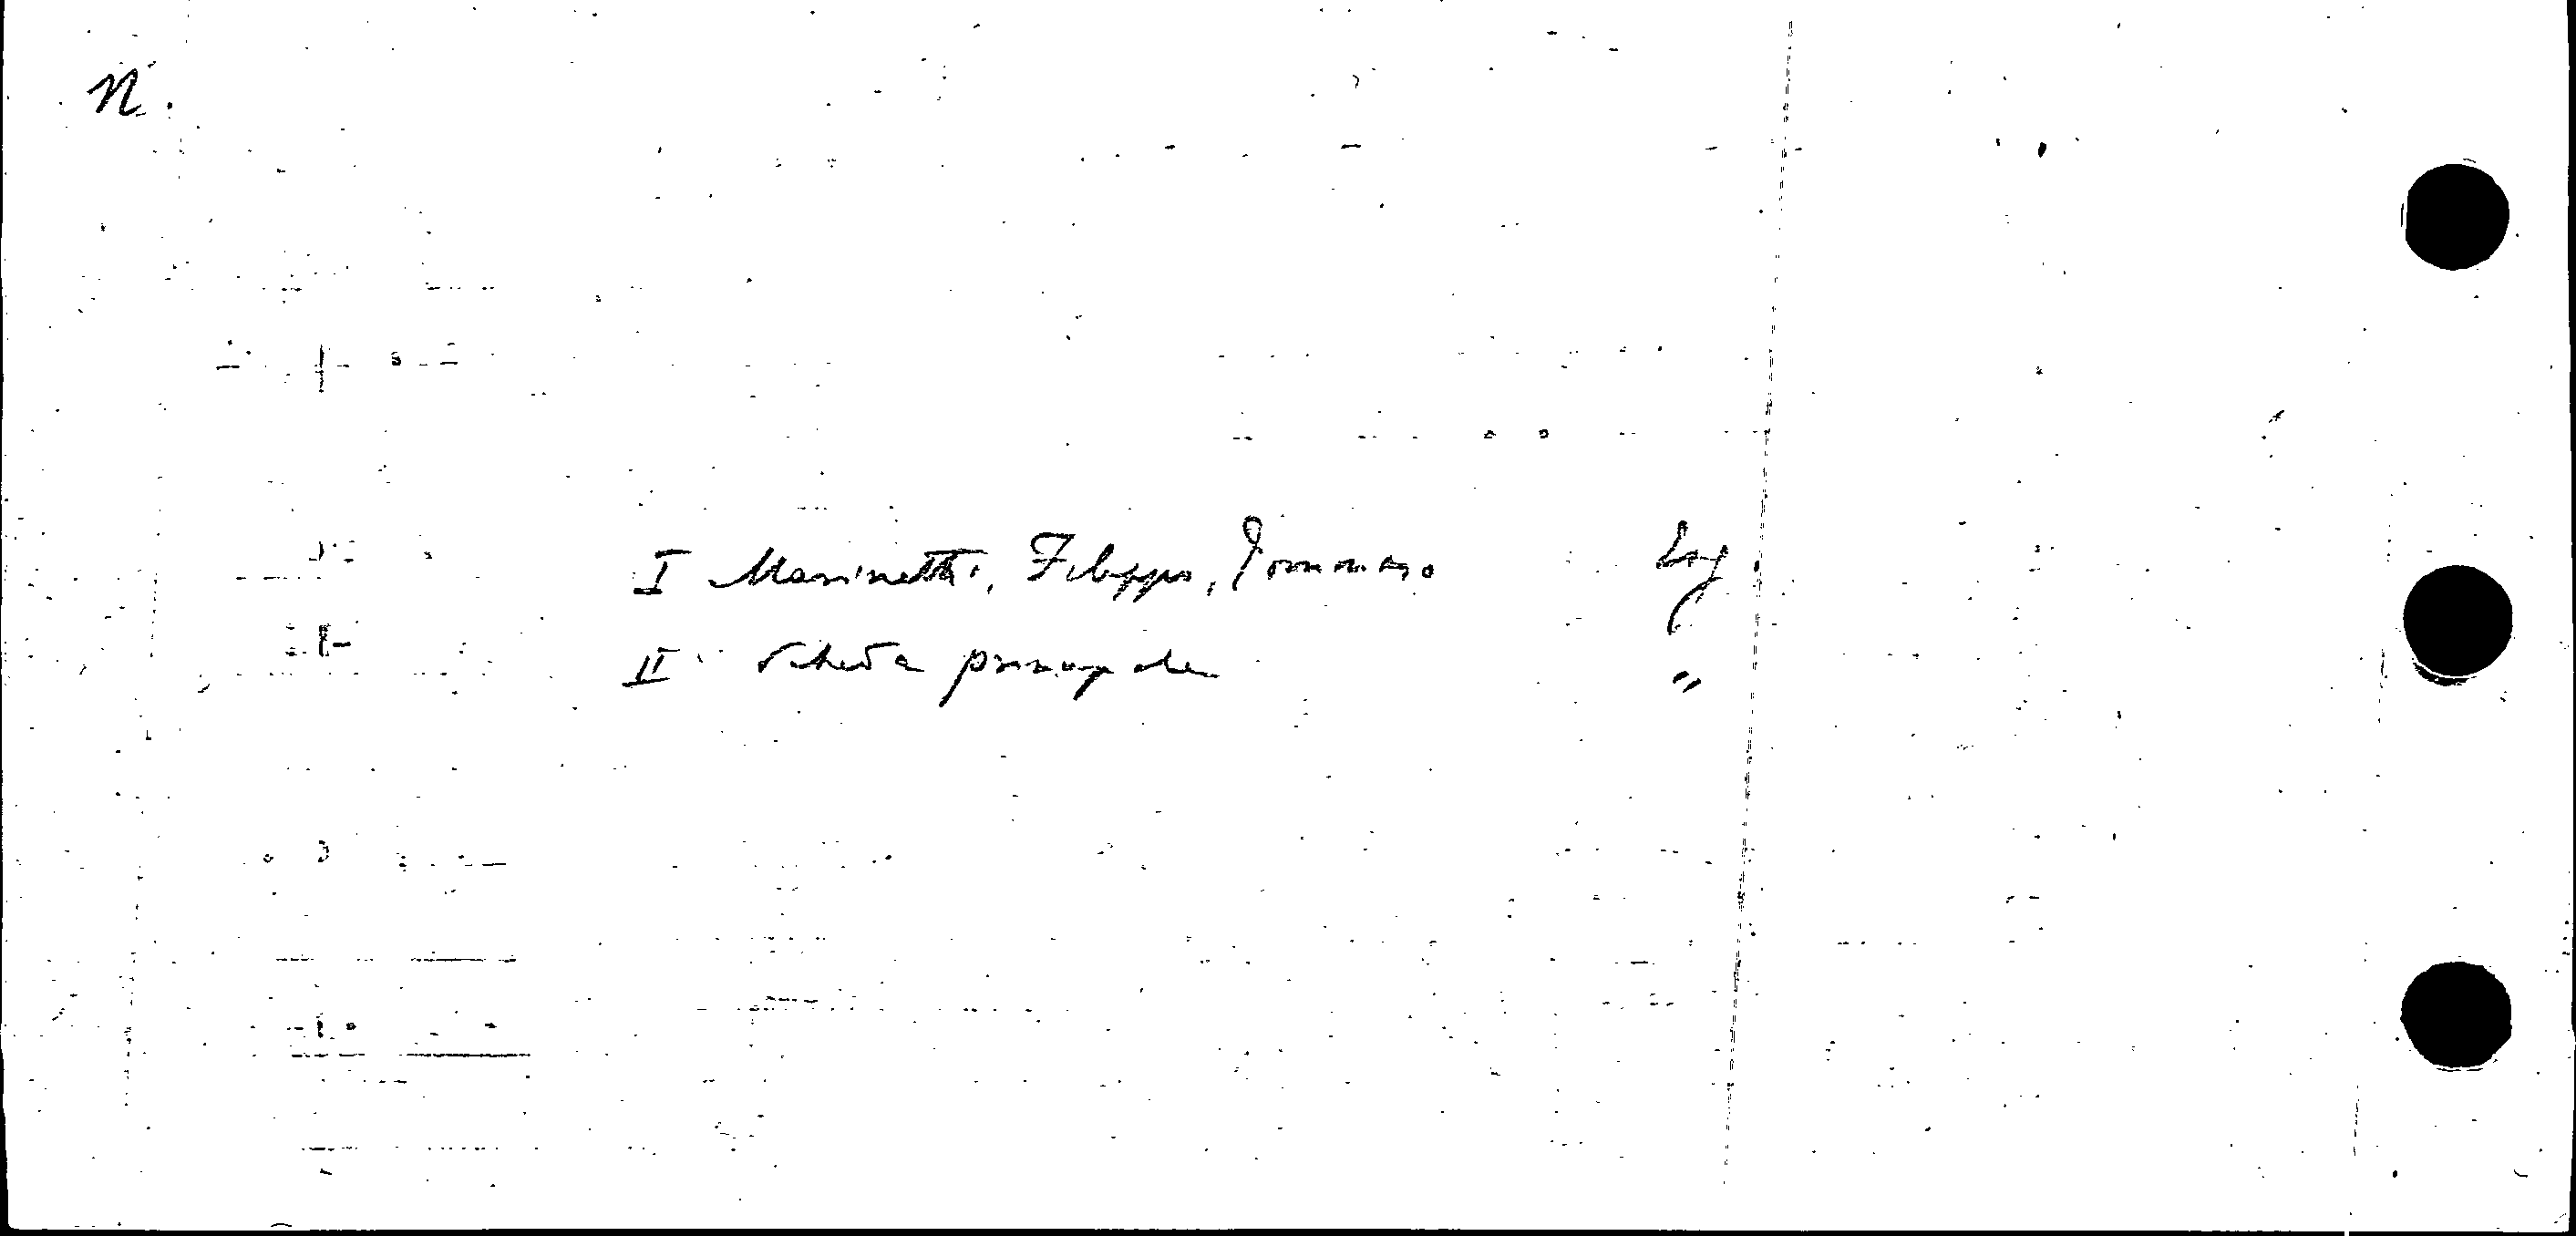 N.
I Marinetti, Filippo, Tommaso
II Scheda principale "